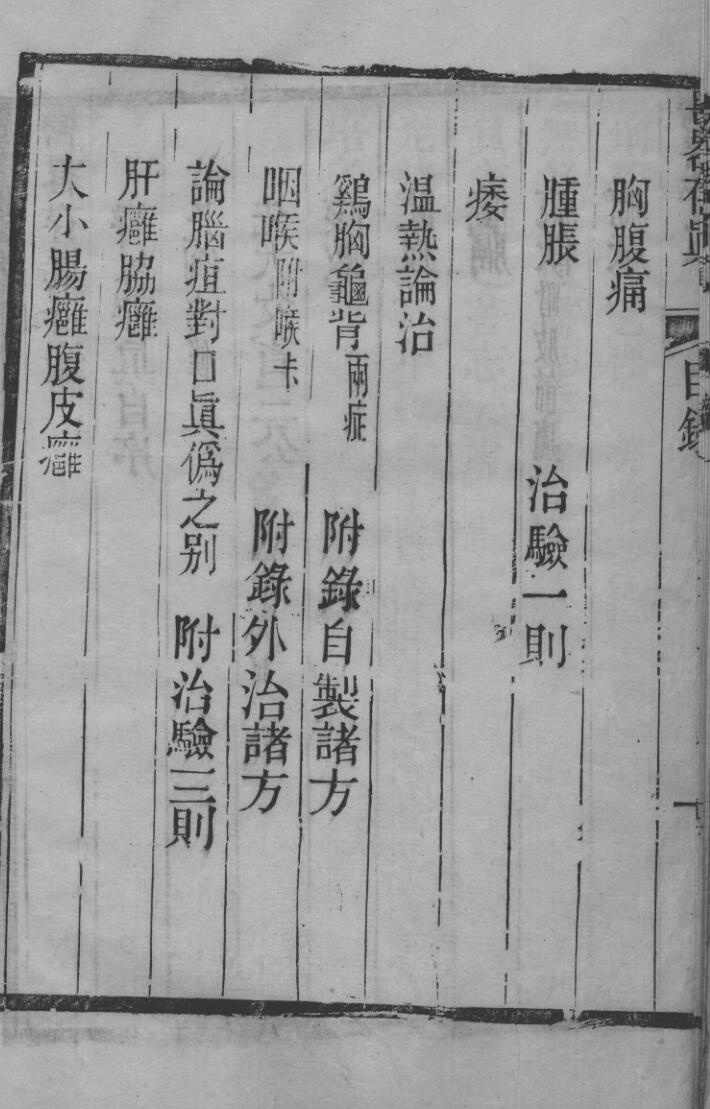 胸腹痛
腫脹 治驗一則
痿
温熱論治
鷄胸龜背兩症 附錄自製諸方
咽喉附喉卡 附錄外治諸方
論腦疽對口眞僞之别 附治驗三則
肝癰脇癰
大小腸癰腹皮癰
目錄